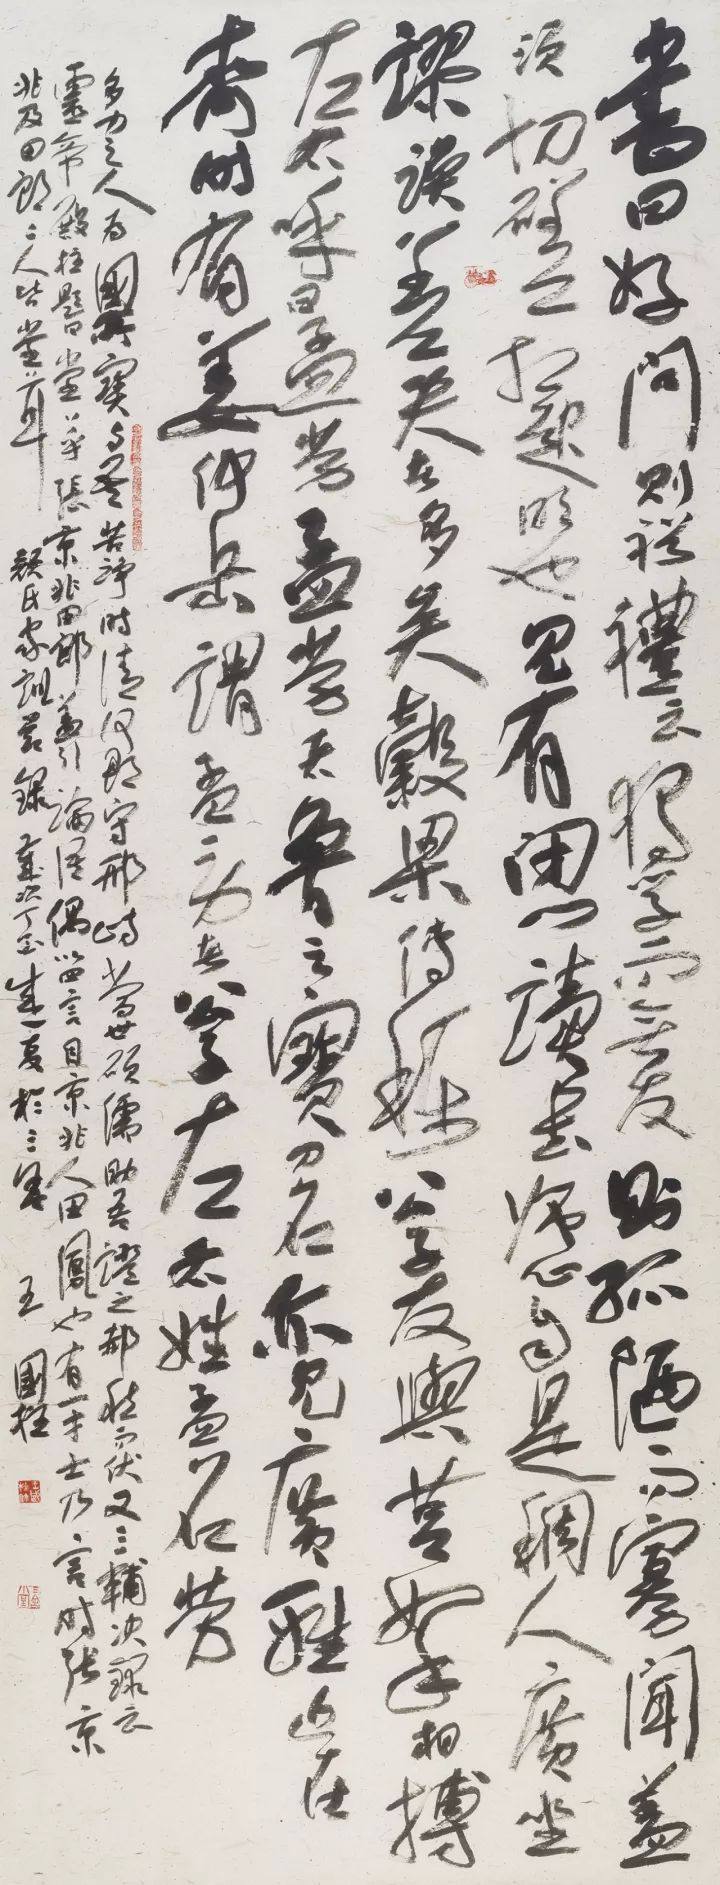 書曰好問則裕禮云獨學而無友則孤陋而寡聞蓋
須切磋相起明也見有閉門讀書師心自是稠人廣坐
謬誤差失者多矣穀梁傳稱公子友與莒挐相搏
左右呼曰孟勞孟勞者魯之寶刀名亦見廣雅近在
齊時有姜仲岳謂孟勞者公子左右姓孟名勞
多力之人為國所寶與吾苦諍時清河郡守邢峙當世碩儒助吾證之赧然而伏又三輔決錄云
靈帝殿柱題曰堂堂乎張京兆田郎蓋引論語偶以四言目京兆人田鳳也有一才士乃言時張京
兆及田郎二人皆堂堂耳 顏氏家訓節錄 歲次丁酉盛夏於三 王國柱